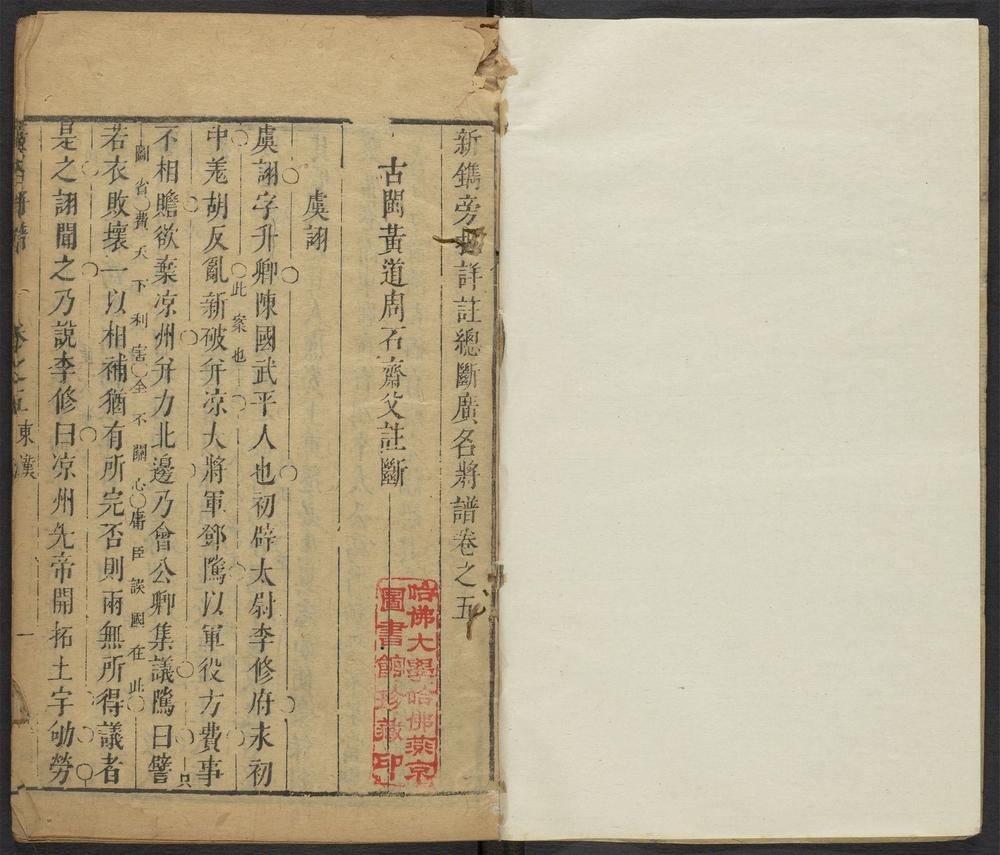 新鐫旁批詳註總斷廣名將譜卷之五
古閩黃道周石齋父註斷
虞詡
虞詡字升卿陳國武平人也初辟太尉李修府永初
中羗胡反亂新破幷凉大將軍鄧隲以軍役方費事
此案也
不相贍欲棄凉州幷力北邊乃會公卿集議隲曰譬
只
圖省費天下利害全不關心庸臣談國在此
若衣敗壞一以相補猶有所完否則兩無所得議者
是之詡聞之乃說李修曰凉州先帝開拓土宇劬勞
卷之五東漢
一
哈佛大學哈佛燕京
圖書館珍藏印